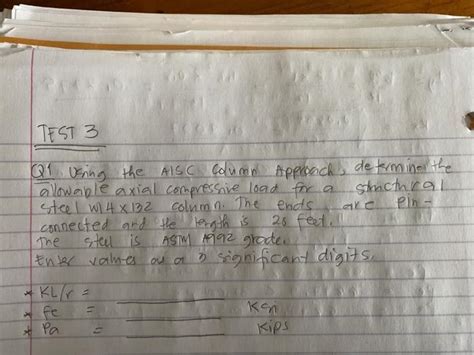 TEST 3
Q1 Using the AISC Column Approach, determine the
allowable axial compressive load for a structural
steel W14x132 column. The ends are pin-
connected and the length is 28 feet.
The steel is ASTM A992 grade.
Enter values as a 3 significant digits.
* KL/r =
* Fe = Ksi
* Pa = Kips